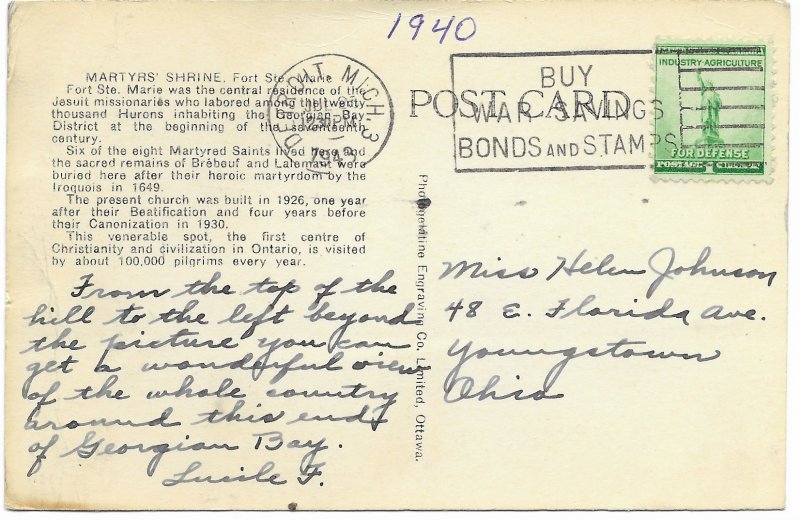 1940
MARTYRS' SHRINE, Fort Ste. Marie
Fort Ste. Marie was the central residence of the
Jesuit missionaries who labored among the twenty
thousand Hurons inhabiting the Georgian Bay
District at the beginning of the seventeenth
century.
Six of the eight Martyred Saints lived here and
the sacred remains of Brébeuf and Lalemant were
buried here after their heroic martyrdom by the
Iroquois in 1649.
The present church was built in 1926, one year
after their Beatification and four years before
their Canonization in 1930.
This venerable spot, the first centre of
Christianity and civilization in Ontario, is visited
by about 100,000 pilgrims every year.
From the top of the
hill to the left beyond
the picture you can
get a wonderful view
of the whole country
around this end
of Georgian Bay.
Lucile F.
DETROIT MICH. 3
PM
POST CARD
BUY
WAR SAVINGS
BONDS AND STAMPS
INDUSTRY-AGRICULTURE
FOR DEFENSE
POSTAGE 1
Photogelatine Engraving Co. Limited, Ottawa.
Miss Helen Johnson
48 E. Florida Ave.
Youngstown
Ohio